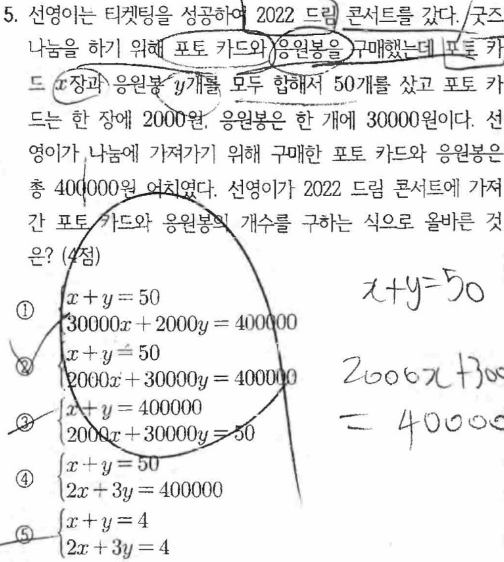 5. 선영이는 티켓팅을 성공하여 2022 드림 콘서트를 갔다. 굿즈
나눔을 하기 위해 포토 카드와 응원봉을 구매했는데 포토 카
드 x장과 응원봉 y개를 모두 합해서 50개를 샀고 포토 카
드는 한 장에 2000원, 응원봉은 한 개에 30000원이다. 선
영이가 나눔에 가져가기 위해 구매한 포토 카드와 응원봉은
총 400000원 어치였다. 선영이가 2022 드림 콘서트에 가져
간 포토 카드와 응원봉의 개수를 구하는 식으로 올바른 것
은? (4점)
① x+y=50
30000x+2000y=400000
② x+y=50
2000x+30000y=400000
③ x+y=400000
2000x+30000y=50
④ x+y=50
2x+3y=400000
⑤ x+y=4
2x+3y=4
x+y=50
2000x+300
=40000